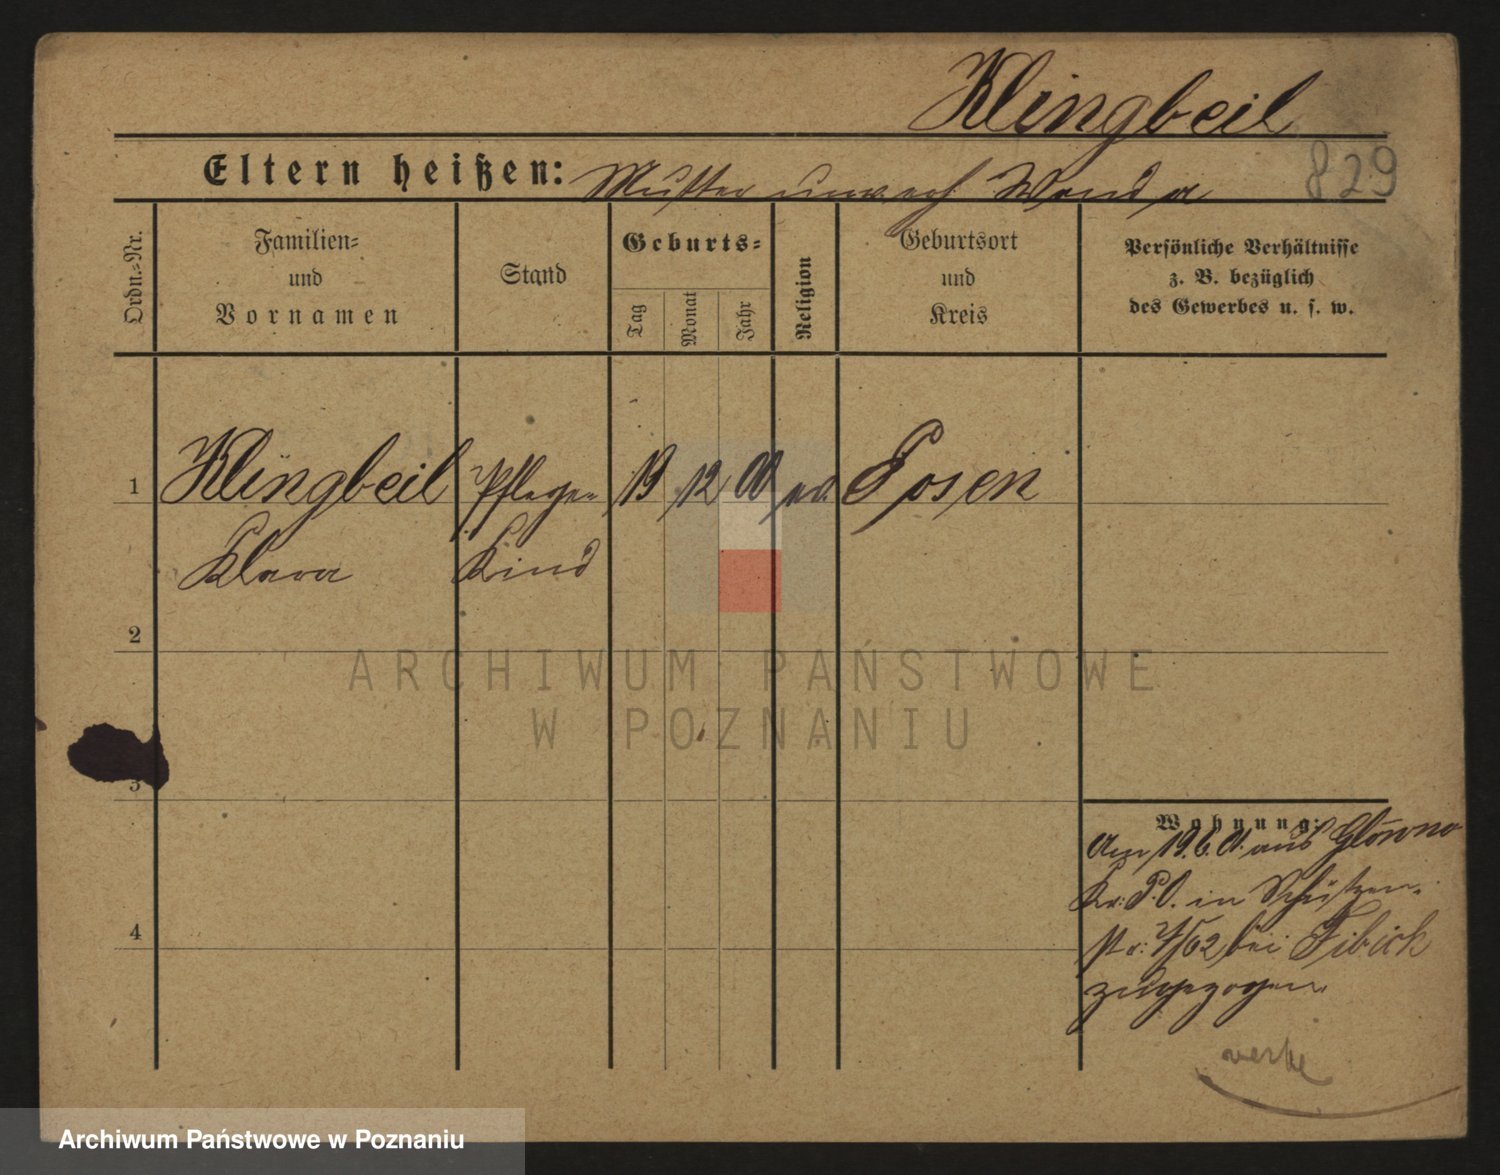 Klingbeil
829
Eltern heißen: Mutter unverh Wanda
Ordn.=Nr.
Familien=
und
Vornamen
Stand
Geburts=
Tag
Monat
Jahr
Religion
Geburtsort
und
Kreis
Persönliche Verhältnisse
z. B. bezüglich
des Gewerbes u. s. w.
1 Klingbeil Pflege= 19 12 00 ev. Posen
Klara Kind
2
ARCHIWUM PAŃSTWOWE
W POZNANIU
3
Wohnung:
Am 19.6.01. aus Glówno
Kr. P. O. in Schützen=
4
str: bei Fibick
zugezogen
Archiwum Państwowe w Poznaniu